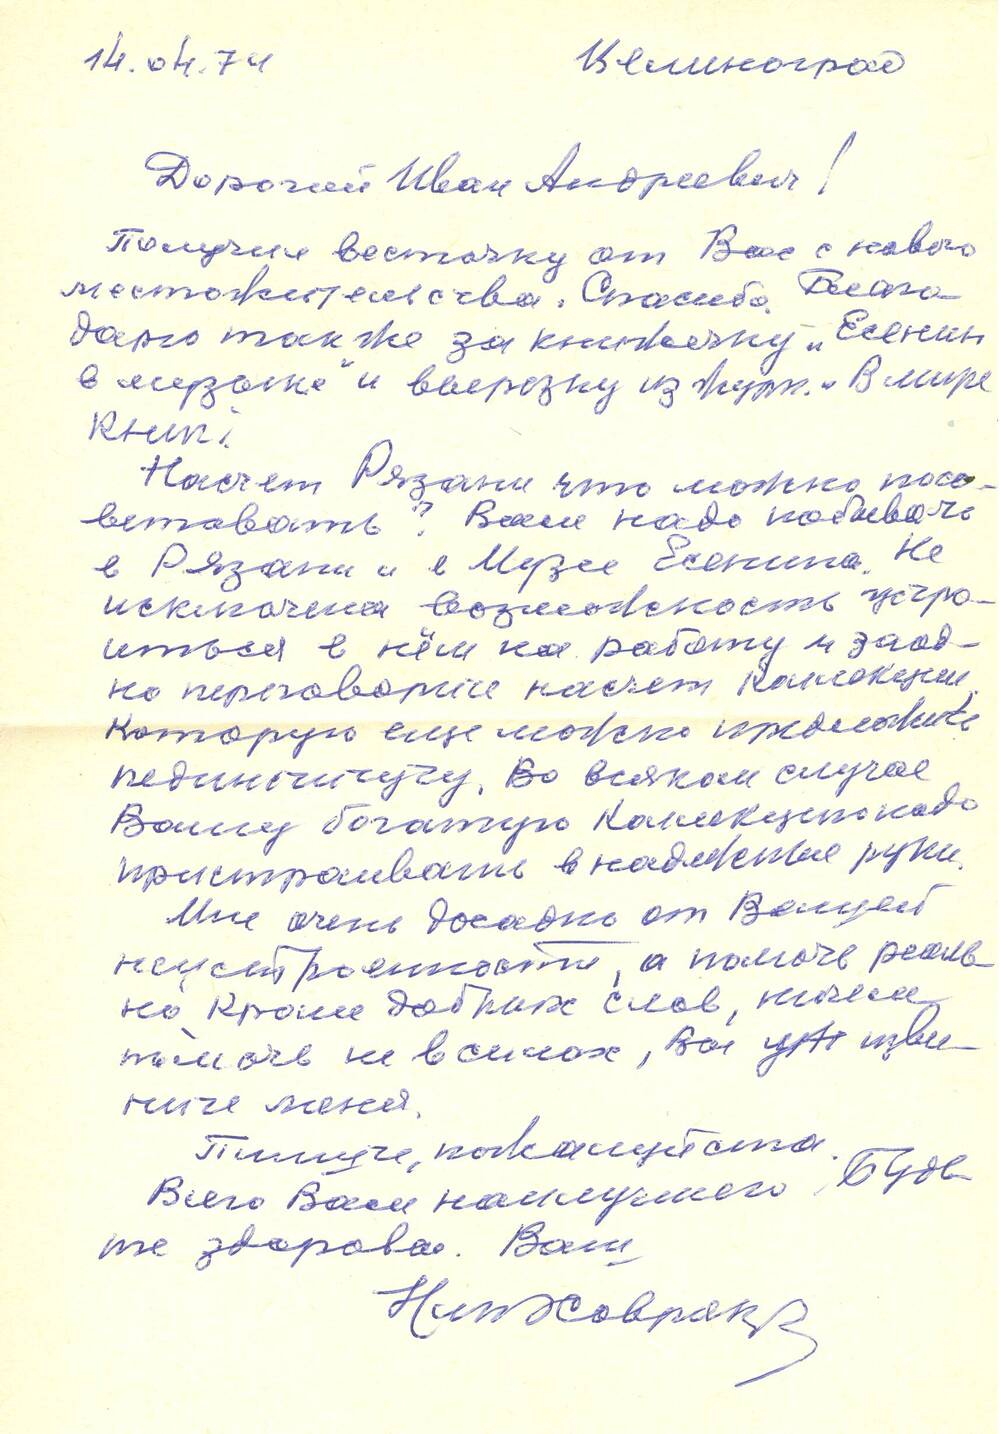 14.04.74 Целиноград
Дорогой Иван Андреевич!
Получил весточку от Вас с нового
местожительства. Спасибо. Блага-
дарю также за книжечку „Есенин
в музыке" и вырезку из журн. „В мире
книг".
Насчет Рязани что можно посо-
ветовать? Вам надо побывать
в Рязани и в Музее Есенина. Не
исключена возможность устро-
иться в нём на работу и заод-
но переговорите насчет коллекции,
которую еще можно предложить
пединституту. Во всяком случае
Вашу богатую коллекцию надо
пристраивать в надежные руки.
Мне очень досадно от Вашей
неустроенности, а помочь реаль-
но кроме добрых слов, ничем
помочь не в силах, Вы уж изви-
ните меня.
Пишите, пожалуйста.
Всего Вам наилучшего. Будь-
те здоровы. Ваш